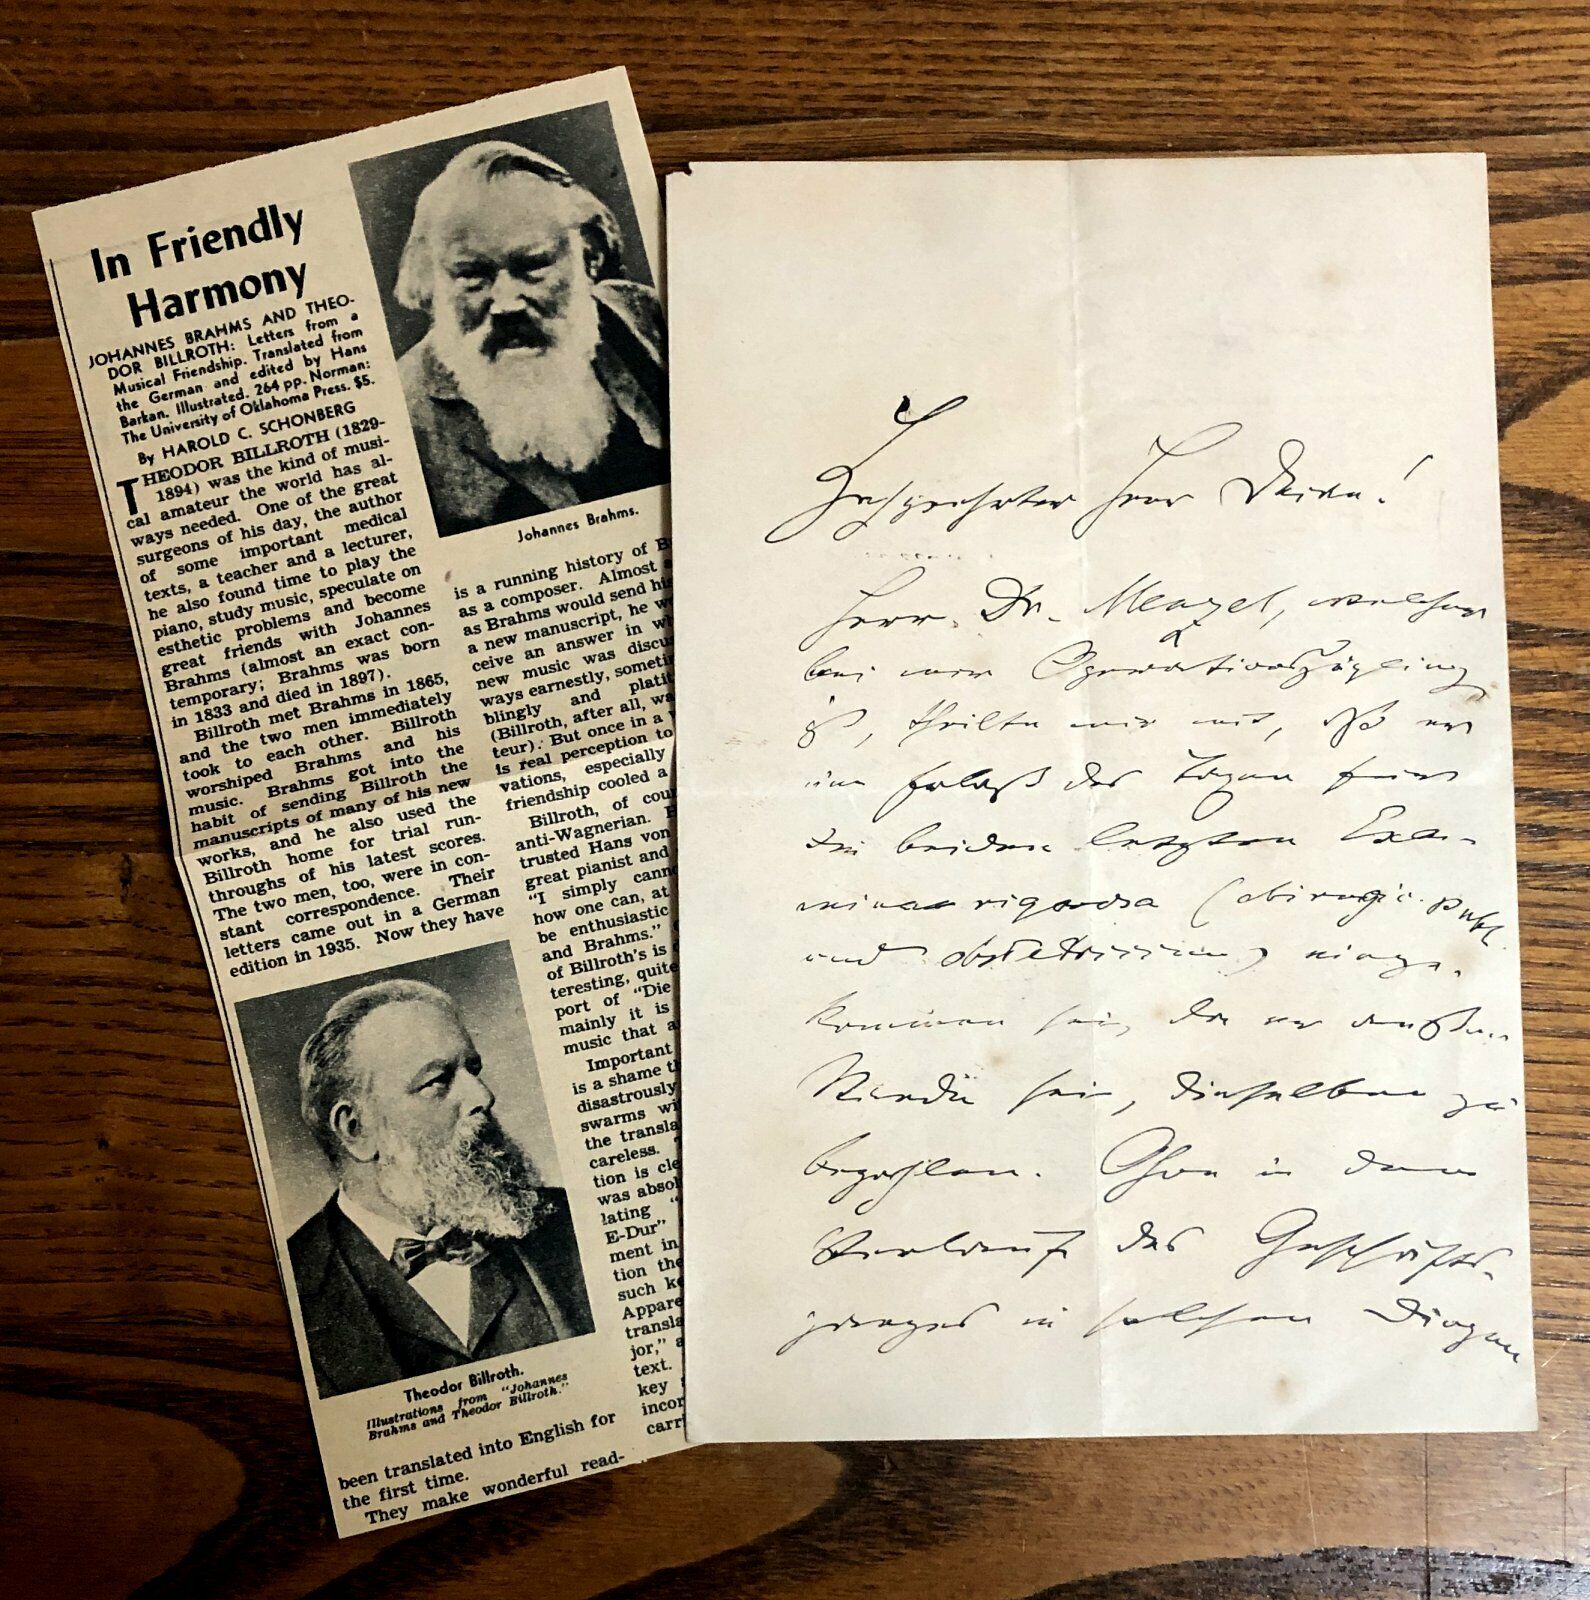 In Friendly
Harmony
JOHANNES BRAHMS AND THEO-
DOR BILLROTH: Letters from a
Musical Friendship. Translated from
the German and edited by Hans
Barkan. Illustrated. 264 pp. Norman:
The University of Oklahoma Press. $5.
By HAROLD C. SCHONBERG
THEODOR BILLROTH (1829-
1894) was the kind of musi-
cal amateur the world has al-
ways needed. One of the great
surgeons of his day, the author
of some important medical
texts, a teacher and a lecturer,
he also found time to play the
piano, study music, speculate on
esthetic problems and become
great friends with Johannes
Brahms (almost an exact con-
temporary; Brahms was born
in 1833 and died in 1897).
Billroth met Brahms in 1865,
and the two men immediately
took to each other. Billroth
worshiped Brahms and his
music. Brahms got into the
habit of sending Billroth the
manuscripts of many of his new
works, and he also used the
Billroth home for trial run-
throughs of his latest scores.
The two men, too, were in con-
stant correspondence. Their
letters came out in a German
edition in 1935. Now they have
Theodor Billroth.
Illustrations from "Johannes
Brahms and Theodor Billroth."
been translated into English for
the first time.
They make wonderful read-
Johannes Brahms.
is a running history of
as a composer. Almost
as Brahms would send his
a new manuscript, he
ceive an answer in
new music was
ways earnestly,
blingly and
(Billroth, after all,
teur). But once in a
is real perception to
vations, especially
friendship cooled a
Billroth, of
anti-Wagnerian.
trusted Hans von
great pianist and
"I simply
how one can, at
be enthusiastic
and Brahms."
of Billroth's is
teresting, quite
port of "Die
mainly it is
music that
Important
is a shame
disastrously
swarms
the
careless.
tion is
was
lating
E-Dur"
ment in
tion the
such
jor,"
text.
key
Hochgeehrter Herr Decan!
Herr Dr. Menzel, welcher
bei mir Operationszögling
ist, theilte mir mit, daß er
um Erlaß der Taxen für
die beiden letzten Exa-
mina rigorosa (chirurgic. publ.
und obstetricium) einge-
kommen sei, da er außer
Stande sei, dieselben zu
bezahlen. Ohne in dem
Verlauf des Geschäfts-
ganges in solchen Dingen